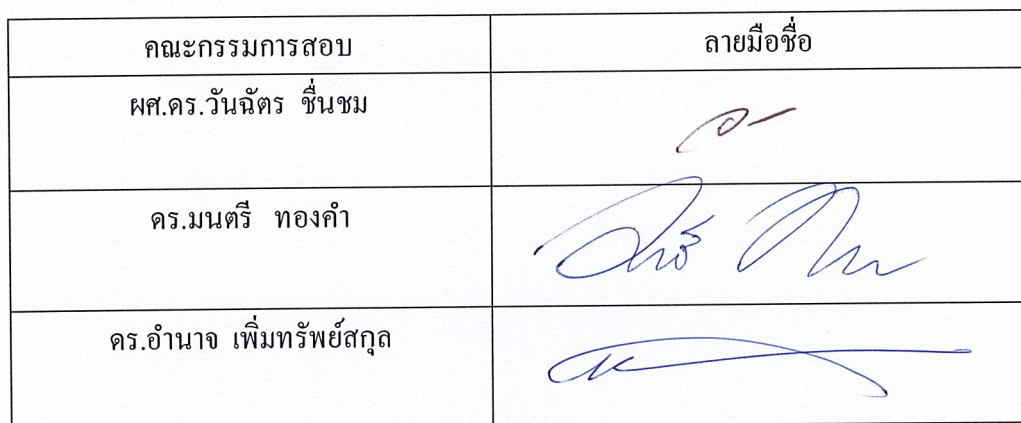 คณะกรรมการสอบ ลายมือชื่อ
ผศ.ดร.วันฉัตร ชื่นชม
ดร.มนตรี ทองคำ
ดร.อำนาจ เพิ่มทรัพย์สกุล